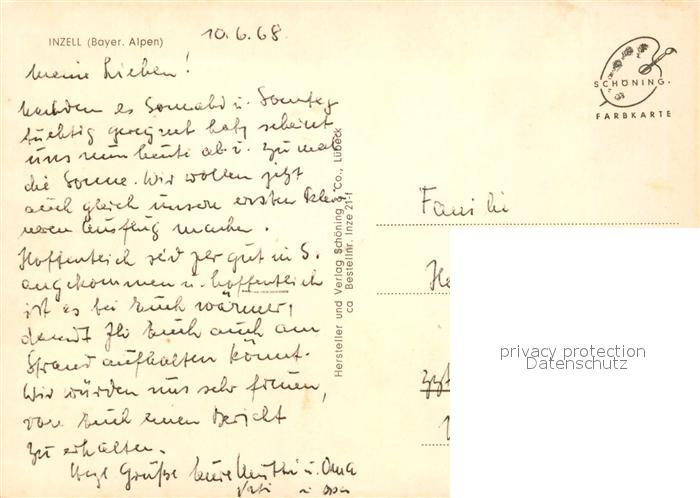 INZELL (Bayer. Alpen)
10.6.68
Meine Lieben!
Nachdem es Sonnabd u. Sonntag
tüchtig geregnet hat, scheint
uns nun heute ab u. zu mal
die Sonne. Wir wollen jetzt
auch gleich unseren ersten kleine-
ren Ausflug machen.
Hoffentlich seid Ihr gut in S.
angekommen u. hoffentlich
ist es bei Euch wärmer,
damit Ihr Euch auch am
Strand aufhalten könnt.
Wir würden uns sehr freuen,
von Euch einen Bericht
zu erhalten.
Herzl Grüße Eure Mutti u. Oma
Vati u. Opa
Hersteller und Verlag Schöning & Co., Lübeck
Bestellnr. Inze 21-f
SCHÖNING
FARBKARTE
Familie
He
zzt
privacy protection
Datenschutz